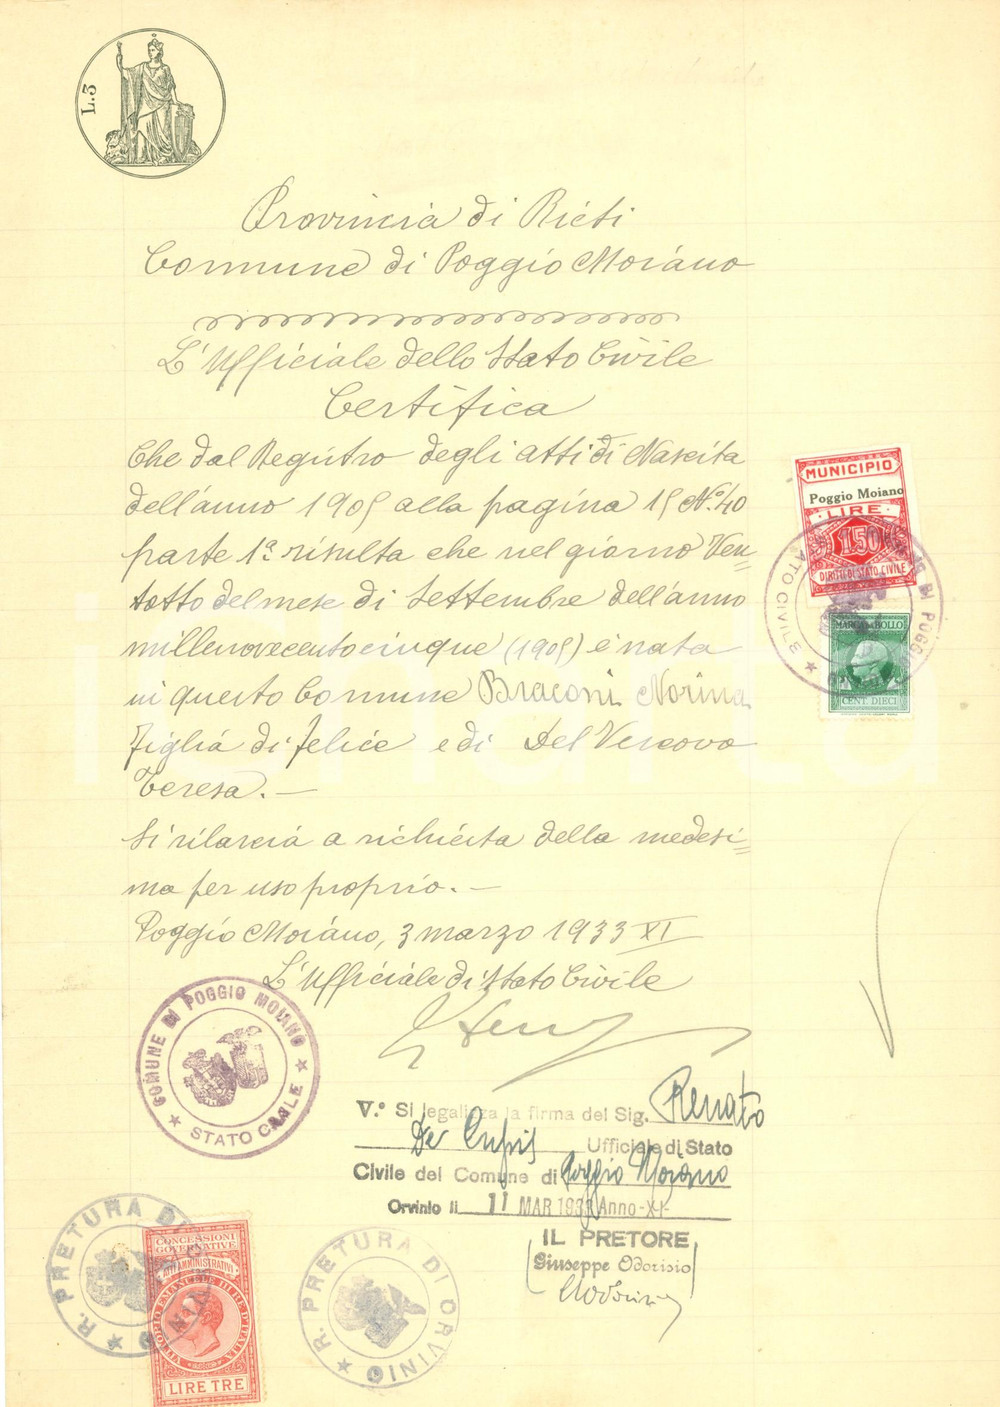 L.3
Provincia di Rieti
Comune di Poggio Moiano
L'Ufficiale dello Stato Civile
Certifica
Che dal Registro degli atti di Nascita
dell'anno 1905 alla pagina 15 N.º 40
parte 1ª risulta che nel giorno Ven=
totto del mese di Settembre dell'anno
millenovecentocinque (1905) è nata
in questo Comune Braconi Norina
figlia di Felice e di Del Vescovo
Teresa. —
Si rilascia a richiesta della medesi=
ma per uso proprio. —
Poggio Moiano, 3 marzo 1933 XI
L'Ufficiale di Stato Civile
MUNICIPIO
Poggio Moiano
LIRE
1.50
DIRITTI DI STATO CIVILE
MARCA DA BOLLO
CENT DIECI
COMUNE DI POGGIO MOIANO
STATO CIVILE
V.º Si legalizza la firma del Sig. Renato
De Cupis Ufficiale di Stato
Civile del Comune di Poggio Moiano
Orvinio li 11 MAR 1933 Anno-XI-
IL PRETORE
(Giuseppe Odorisio)
R. PRETURA DI ORVINIO
CONCESSIONI
GOVERNATIVE
ATTI AMMINISTRATIVI
VITTORIO EMANUELE III RE D'ITALIA
LIRE TRE
R. PRETURA DI ORVINIO